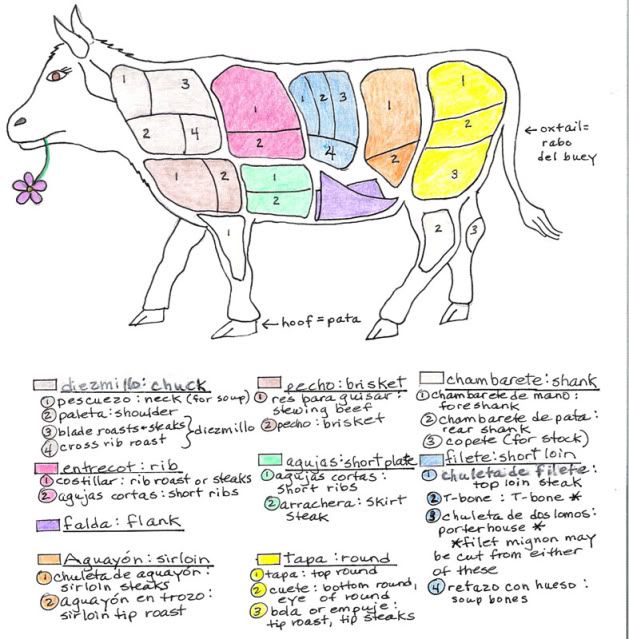 1
3
2
4
1
2
1
2
3
4
1
2
1
2
3
1
2
1
2
1
2
3
←oxtail=
rabo
del buey
←hoof=pata
diezmillo: chuck
① pescuezo: neck (for soup)
② paleta: shoulder
③ blade roasts + steaks
④ cross rib roast
} diezmillo
entrecot: rib
① costillar: rib roast or steaks
② agujas cortas: short ribs
falda: flank
Aguayón: sirloin
① chuleta de aguayón:
sirloin steaks
② aguayón en trozo:
sirloin tip roast
pecho: brisket
① res para guisar:
stewing beef
② pecho: brisket
agujas: short plate
① agujas cortas:
short ribs
② arrachera: skirt
steak
Tapa: round
① tapa: top round
② cuete: bottom round,
eye of round
③ bola or empuje:
tip roast, tip steaks
chambarete: shank
① chambarete de mano:
foreshank
② chambarete de pata:
rear shank
③ copete (for stock)
filete: short loin
① chuleta de filete:
top loin steak
② T-bone: T-bone *
③ chuleta de dos lomos:
porterhouse *
*filet mignon may
be cut from either
of these
④ retazo con hueso:
soup bones